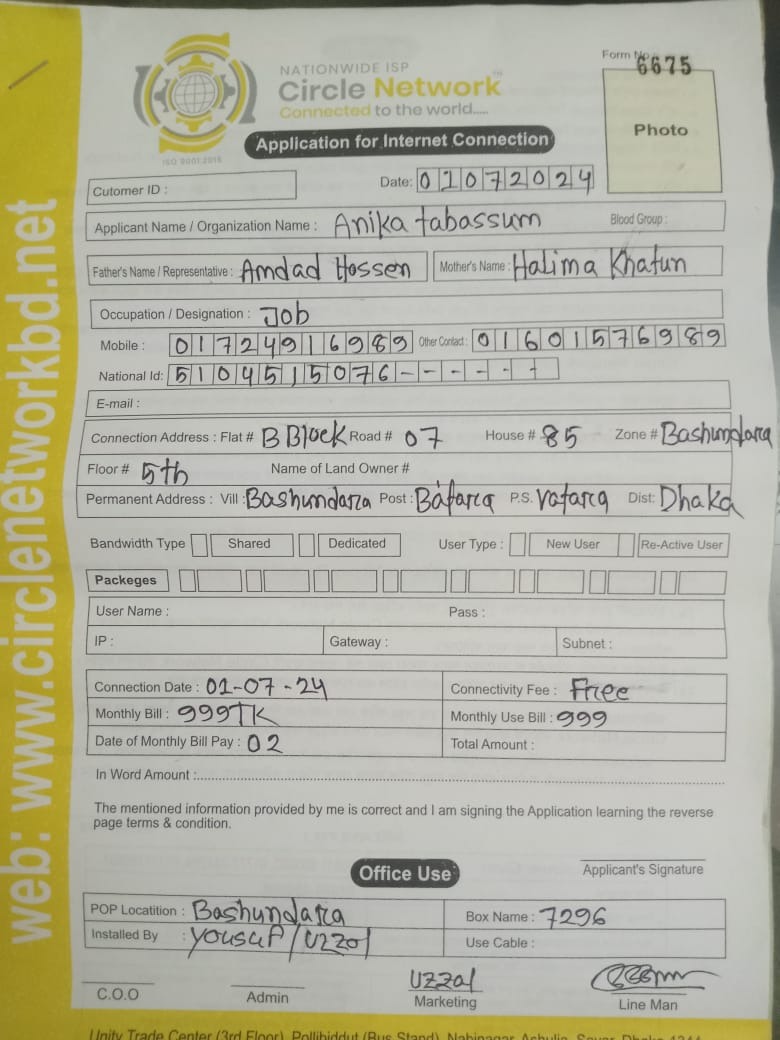 web: www.circlenetworkbd.net
NATIONWIDE ISP
Circle Network™
Connected to the world.....
ISO 9001:2015
Form No. 6675
Photo
Application for Internet Connection
Cutomer ID :
Date: 01072024
Applicant Name / Organization Name : Anika tabassum Blood Group :
Father's Name / Representative : Amdad Hossen Mother's Name : Halima Khatun
Occupation / Designation : Job
Mobile : 01724916989 Other Contact : 01601576989
National Id: 5104515076------
E-mail :
Connection Address : Flat # B Block Road # 07 House # 85 Zone # Bashundara
Floor # 5th Name of Land Owner #
Permanent Address : Vill : Bashundara Post : Bafara P.S. Vatara Dist: Dhaka
Bandwidth Type Shared Dedicated User Type : New User Re-Active User
Packeges
User Name : Pass :
IP : Gateway : Subnet :
Connection Date : 01-07-24 Connectivity Fee : Free
Monthly Bill : 999TK Monthly Use Bill : 999
Date of Monthly Bill Pay : 02 Total Amount :
In Word Amount :
The mentioned information provided by me is correct and I am signing the Application learning the reverse
page terms & condition.
Applicant's Signature
Office Use
POP Locatition : Bashundara Box Name : 7296
Installed By : Yousuf/Uzzol Use Cable :
Uzzal
C.O.O Admin Marketing Line Man
Unity Trade Center (3rd Floor), Pollibiddut (Bus Stand), Nabinagar, Ashulia, Savar, Dhaka-1344